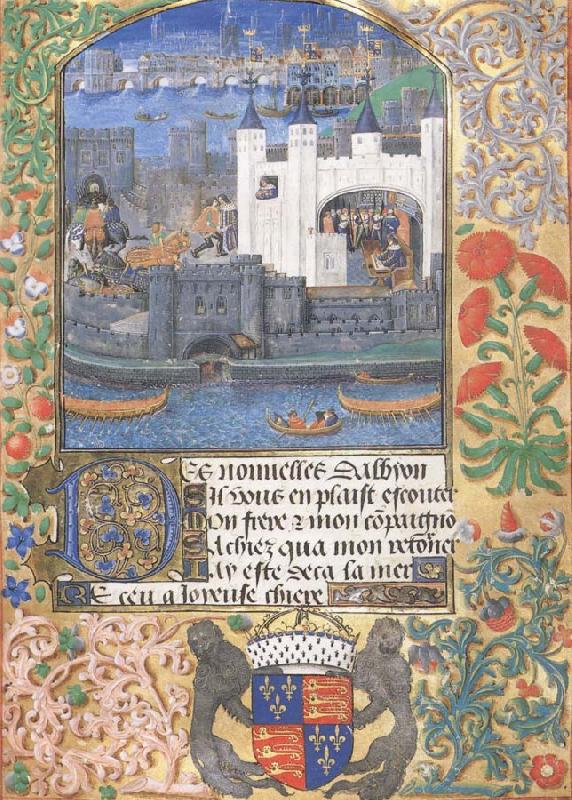 Des nouuelles dalbyon
Sil vous en plaist escouter
Mon frere & mon cōpaignō
Sachiez qua mon retōrner
Jay este deca la mer
Receu a Joyeuse chiere